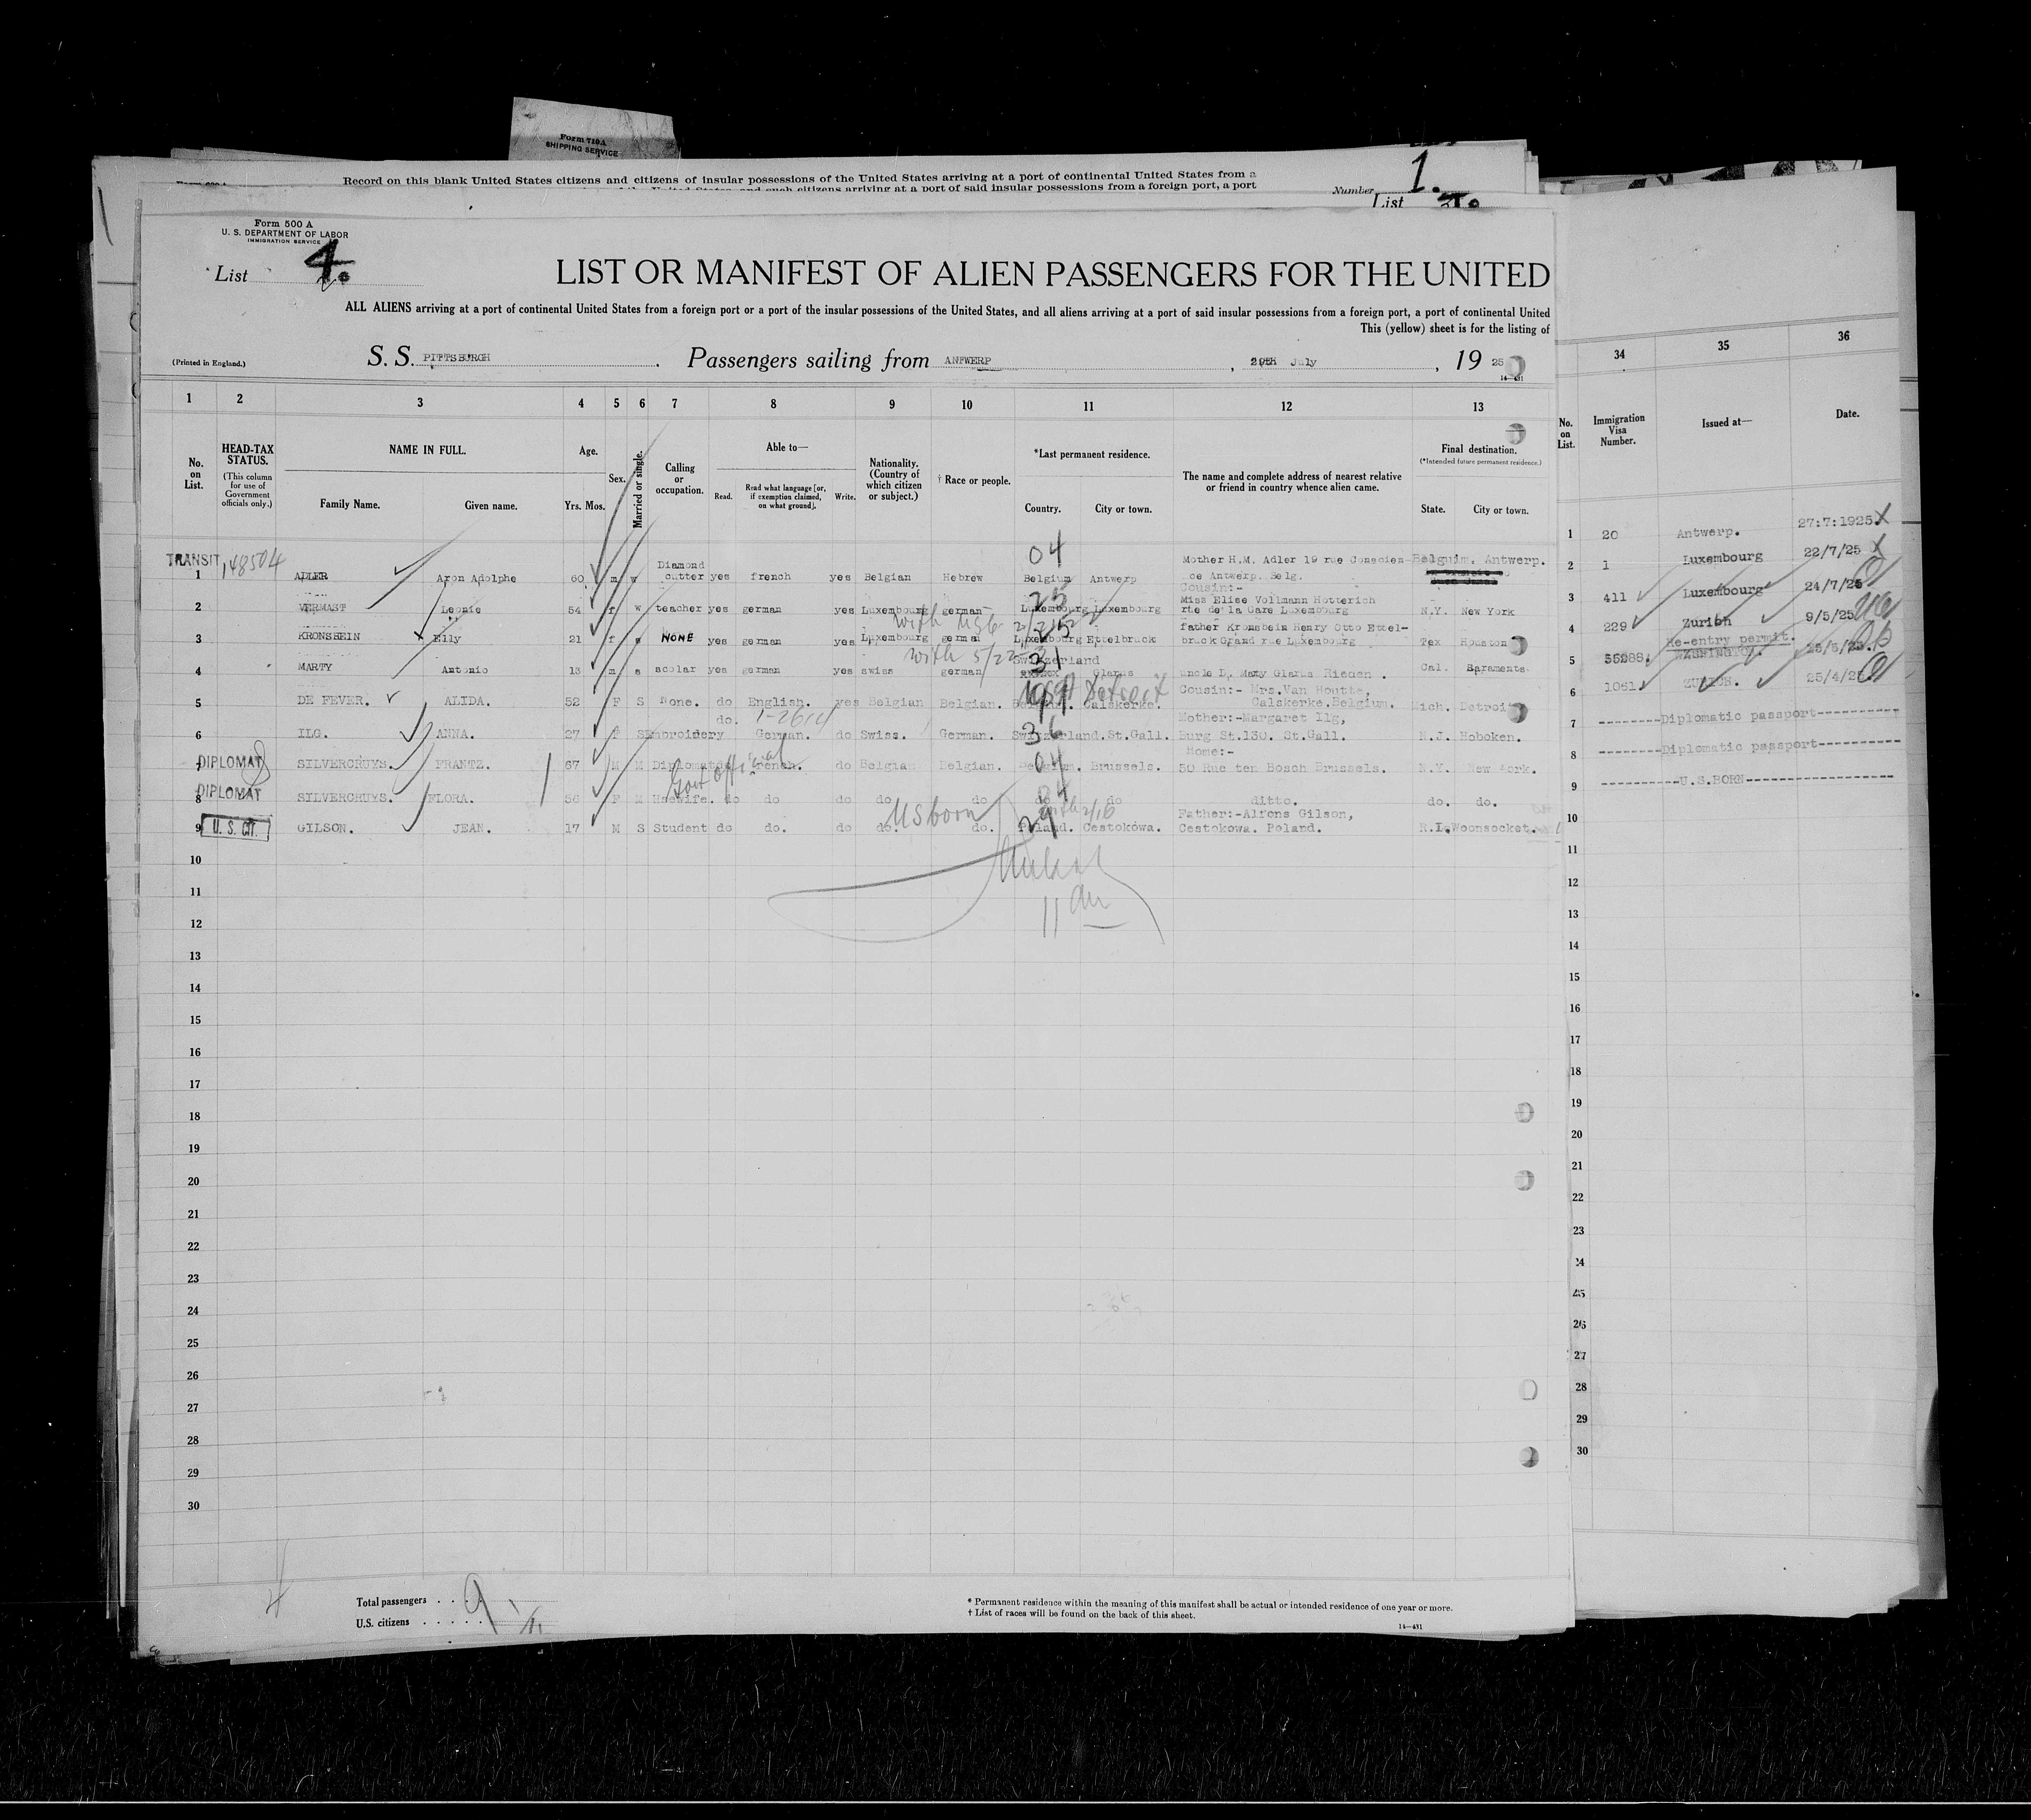 Form 710A
SHIPPING SERVICE
Record on this blank United States citizens and citizens of insular possessions of the United States arriving at a port of continental United States from a
and such citizens arriving at a port of said insular possessions from a foreign port, a port
Number 1.
List
Form 500 A
U. S. DEPARTMENT OF LABOR
IMMIGRATION SERVICE
List 4.
LIST OR MANIFEST OF ALIEN PASSENGERS FOR THE UNITED
ALL ALIENS arriving at a port of continental United States from a foreign port or a port of the insular possessions of the United States, and all aliens arriving at a port of said insular possessions from a foreign port, a port of continental United
This (yellow) sheet is for the listing of
(Printed in England.)
S. S. PITTSBURGH. Passengers sailing from ANTWERP, July, 19 25
14—431
1 2 3 4 5 6 7 8 9 10 11 12 13
No. on List.
HEAD-TAX STATUS.
(This column for use of Government officials only.)
NAME IN FULL.
Family Name. Given name.
Age.
Yrs. Mos.
Sex.
Married or single.
Calling or occupation.
Able to—
Read. Read what language [or, if exemption claimed, on what ground]. Write.
Nationality. (Country of which citizen or subject.)
† Race or people.
*Last permanent residence.
Country. City or town.
The name and complete address of nearest relative or friend in country whence alien came.
Final destination.
(*Intended future permanent residence.)
State. City or town.
34 35 36
No. on List.
Immigration Visa Number.
Issued at—
Date.
TRANSIT 148504
04
1 ADLER Aron Adolphe 60 m w Diamond cutter yes french yes Belgian Hebrew Belgium Antwerp Mother H.M. Adler 19 rue Conscien-ce Antwerp. Belg. Belguim. Antwerp.
2 VERMAST Leonie 54 f w teacher yes german yes Luxembourg german Luxembourg Luxembourg Cousin:- Miss Elise Vollmann Hotterich rue de la Gare Luxembourg N.Y. New York
3 KRONSBEIN Elly 21 f s NONE yes german yes Luxembourg german Luxembourg Ettelbruck father Kronsbein Henry Otto Ettel-bruck Grand rue Luxembourg Tex Houston
with 5/22
31
4 MARTY Antonio 13 m s scolar yes german yes swiss german Switzerland Glarus uncle D. Marty Glarus Rieden. Cal. Sacramento
Detroit
5 DE FEVER. ALIDA. 52 F S None. do English. yes Belgian Belgian. Calskerke. Cousin:- Mrs.Van Houtte, Calskerke.Belgium. Mich. Detroit
36
6 ILG. ANNA. 27 F S Embroidery do. German. do Swiss. German. Switzerland. St.Gall. Mother:-Margaret Ilg, Burg St.130. St.Gall. N.J. Hoboken.
Govt official
04
DIPLOMAT
7 SILVERCRUYS. FRANTZ. 67 M M Diplomat do French. do Belgian Belgian. Brussels. Home:- 50 Rue ten Bosch Brussels. N.Y. New York.
DIPLOMAT
8 SILVERCRUYS. FLORA. 56 F M Hsewife. do do do do do do do ditto. do. do.
US born
U. S. CIT.
9 GILSON. JEAN. 17 M S Student do do. do do. do. Poland. Cestokowa. Father:-Alfons Gilson, Cestokowa. Poland. R.I. Woonsocket.
11 am
10
11
12
13
14
15
16
17
18
19
20
21
22
23
24
25
26
27
28
29
30
Total passengers . . . 9
U.S. citizens . . . . . .
* Permanent residence within the meaning of this manifest shall be actual or intended residence of one year or more.
† List of races will be found on the back of this sheet.
14—431
1 20 Antwerp. 27:7:1925
2 1 Luxembourg 22/7/25
3 411 Luxembourg 24/7/25
4 229 Zurich 9/5/25
5 Re-entry permit. WASHINGTON.
6 1061 ZURICH. 25/4/25
7 --------Diplomatic passport----------
8 --------Diplomatic passport----------
9 ----------U.S.BORN-------------------
10
11
12
13
14
15
16
17
18
19
20
21
22
23
24
25
26
27
28
29
30